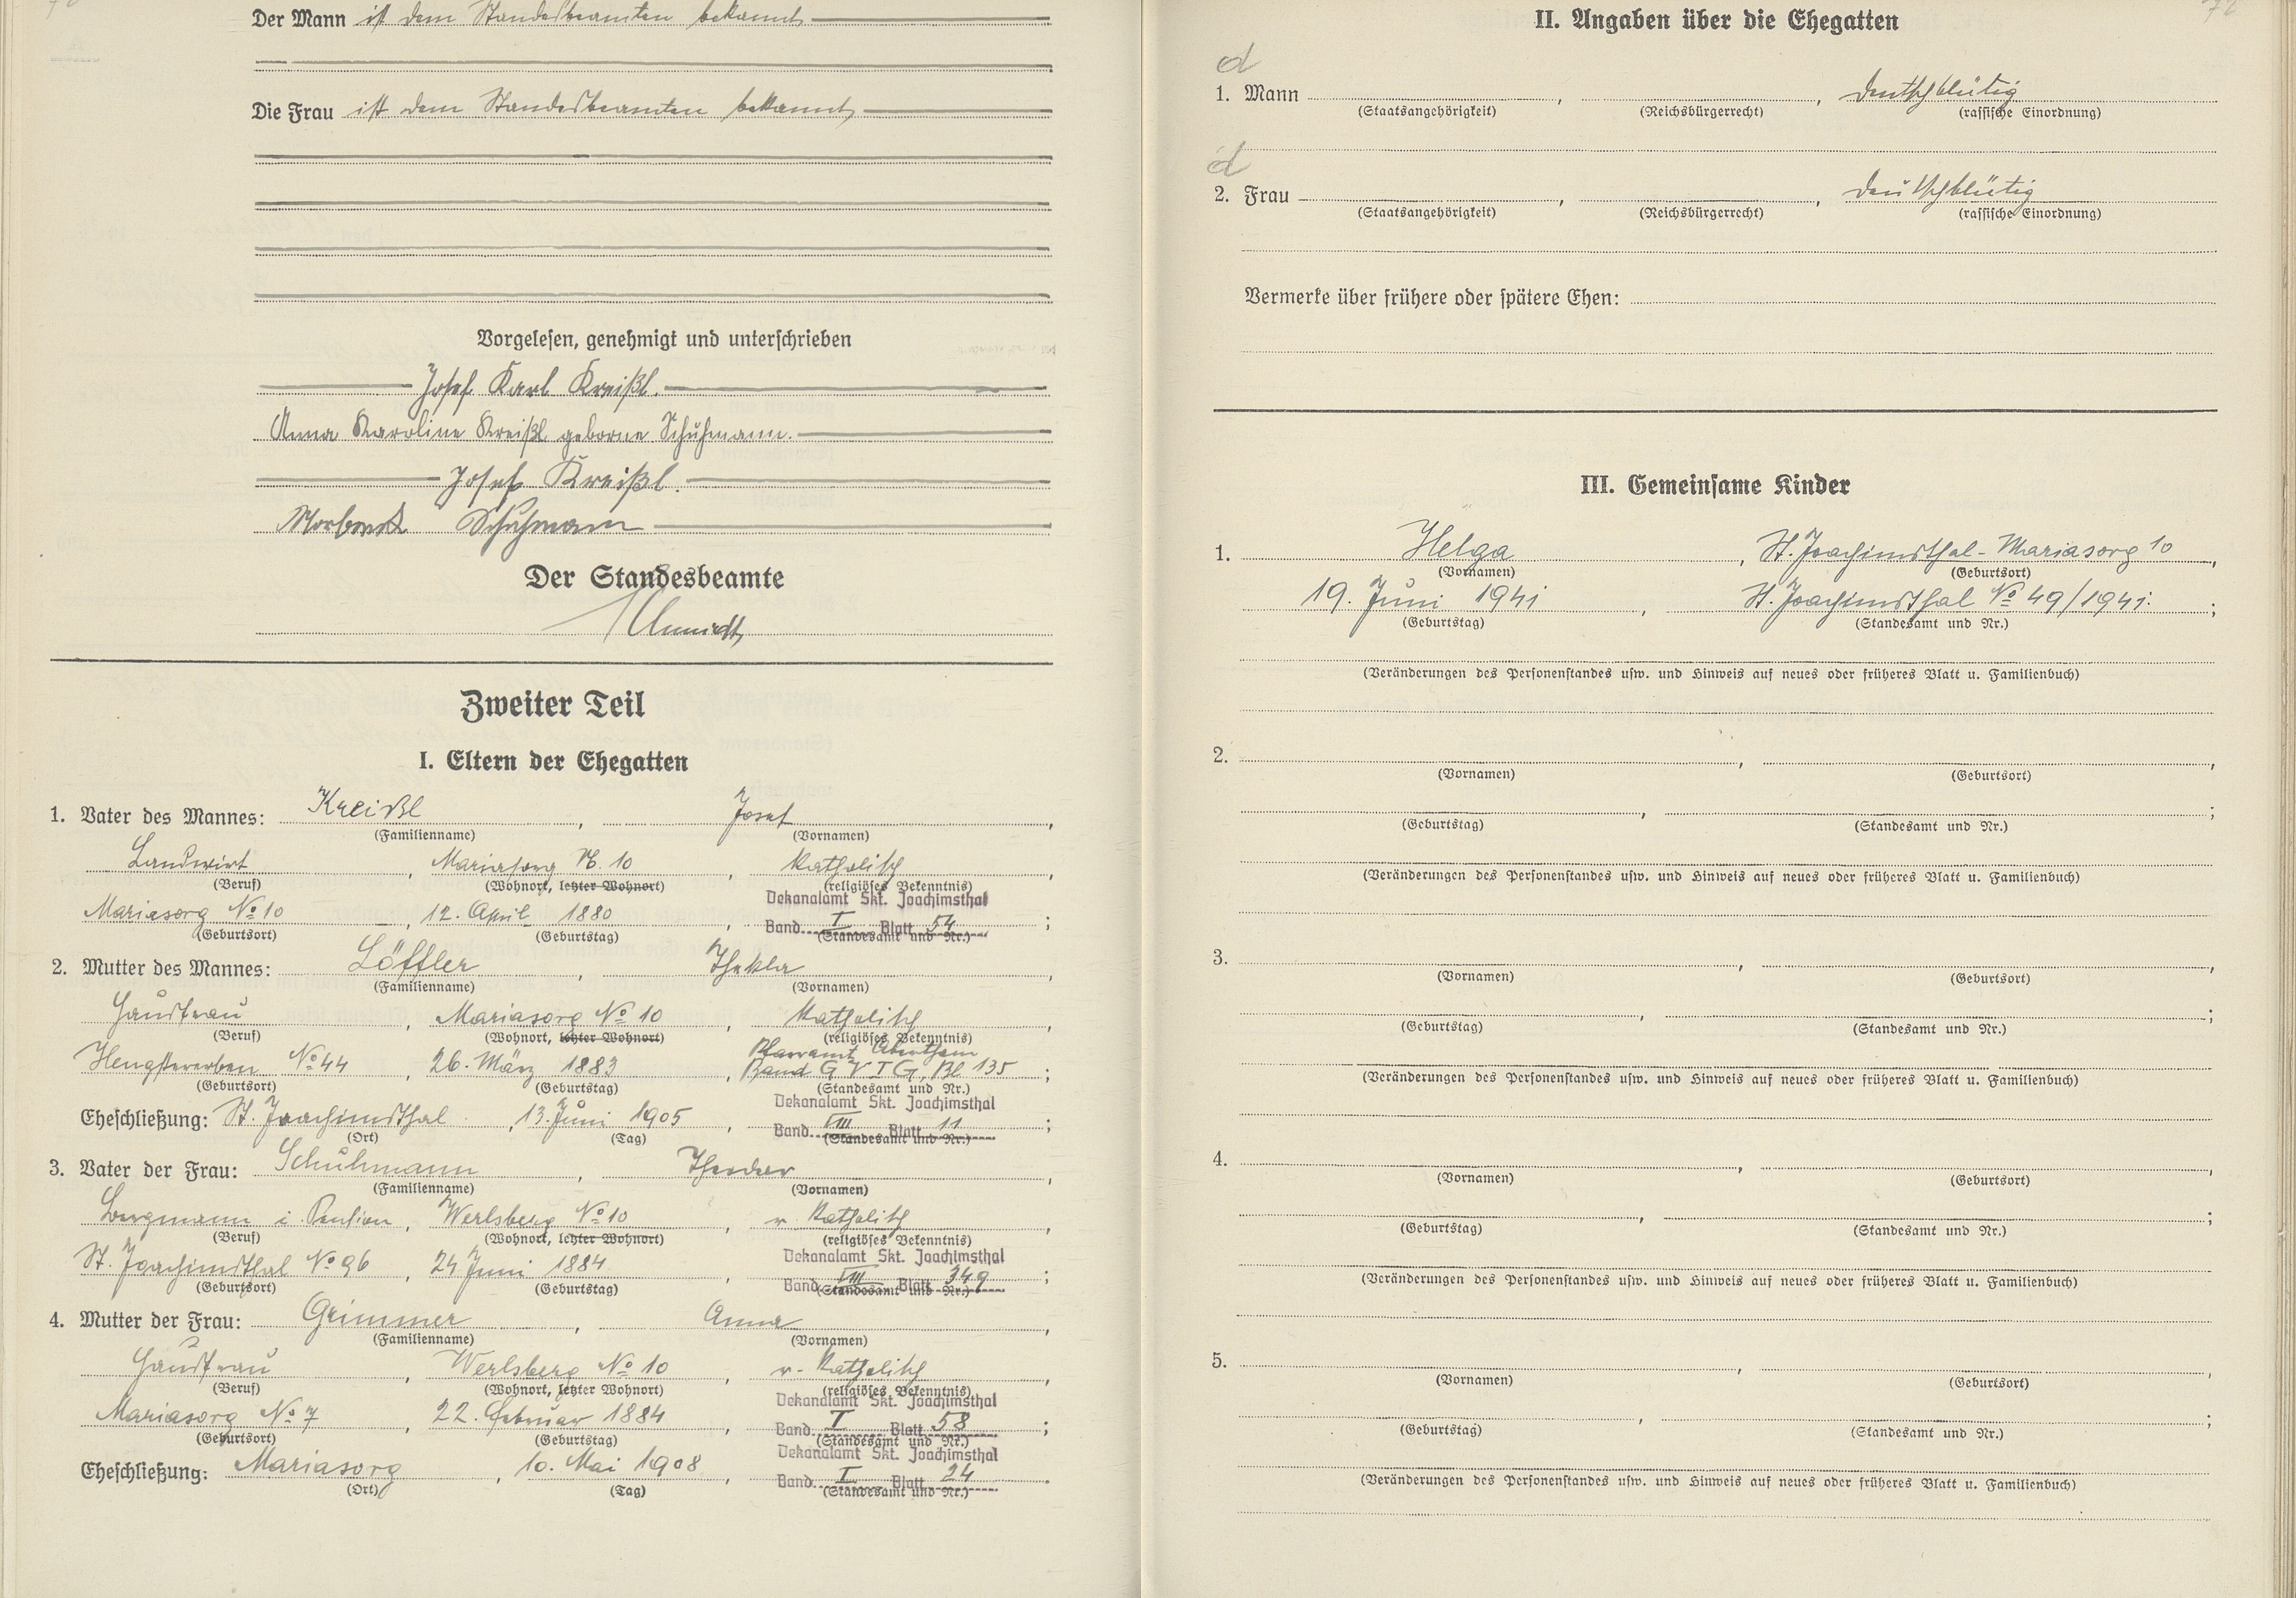 Der Mann ist dem Standesbeamten bekannt
Die Frau ist dem Standesbeamten bekannt,
Vorgelesen, genehmigt und unterschrieben
Josef Karl Kreißl.
Anna Karoline Kreißl geborne Schuhmann.
Josef Kreißl.
Schuhmann
Der Standesbeamte
Zweiter Teil
I. Eltern der Ehegatten
1. Vater des Mannes: Kreißl, Josef,
(Familienname) (Vornamen)
Landwirt, Mariasorg N. 10, katholisch,
(Beruf) (Wohnort, letzter Wohnort) (religiöses Bekenntnis)
Dekanalamt Skt. Joachimsthal
Mariasorg No 10, 12. April 1880, Band I Blatt 54;
(Geburtsort) (Geburtstag) (Standesamt und Nr.)
2. Mutter des Mannes: Löffler, Thekla,
(Familienname) (Vornamen)
Hausfrau, Mariasorg No 10, katholisch,
(Beruf) (Wohnort, letzter Wohnort) (religiöses Bekenntnis)
Pfarramt Abertham
Hengstererben No 44, 26. März 1883, Band G Bl 135;
(Geburtsort) (Geburtstag) (Standesamt und Nr.)
Dekanalamt Skt. Joachimsthal
Eheschließung: St. Joachimsthal, 13. Juni 1905, Band VIII Blatt 11;
(Ort) (Tag) (Standesamt und Nr.)
3. Vater der Frau: Schuhmann, Theodor,
(Familienname) (Vornamen)
Bergmann i. Pension, Werlsberg No 10, r. katholisch,
(Beruf) (Wohnort, letzter Wohnort) (religiöses Bekenntnis)
Dekanalamt Skt. Joachimsthal
St. Joachimsthal No 96, 24 Juni 1884, Band VIII Blatt 349;
(Geburtsort) (Geburtstag) (Standesamt und Nr.)
4. Mutter der Frau: Grimmer, Anna,
(Familienname) (Vornamen)
Hausfrau, Werlsberg No 10, r. katholisch,
(Beruf) (Wohnort, letzter Wohnort) (religiöses Bekenntnis)
Dekanalamt Skt. Joachimsthal
Mariasorg No 7, 22. Februar 1884, Band I Blatt 58;
(Geburtsort) (Geburtstag) (Standesamt und Nr.)
Dekanalamt Skt. Joachimsthal
Eheschließung: Mariasorg, 10. Mai 1908, Band I Blatt 24.
(Ort) (Tag) (Standesamt und Nr.)
II. Angaben über die Ehegatten
d
1. Mann , , deutschblütig
(Staatsangehörigkeit) (Reichsbürgerrecht) (rassische Einordnung)
d
2. Frau , , deutschblütig
(Staatsangehörigkeit) (Reichsbürgerrecht) (rassische Einordnung)
Vermerke über frühere oder spätere Ehen:
III. Gemeinsame Kinder
1. Helga, St. Joachimsthal-Mariasorg 10,
(Vornamen) (Geburtsort)
19. Juni 1941, St. Joachimsthal No 49/1941.;
(Geburtstag) (Standesamt und Nr.)
(Veränderungen des Personenstandes usw. und Hinweis auf neues oder früheres Blatt u. Familienbuch)
2. , ,
(Vornamen) (Geburtsort)
, ;
(Geburtstag) (Standesamt und Nr.)
(Veränderungen des Personenstandes usw. und Hinweis auf neues oder früheres Blatt u. Familienbuch)
3. , ,
(Vornamen) (Geburtsort)
, ;
(Geburtstag) (Standesamt und Nr.)
(Veränderungen des Personenstandes usw. und Hinweis auf neues oder früheres Blatt u. Familienbuch)
4. , ,
(Vornamen) (Geburtsort)
, ;
(Geburtstag) (Standesamt und Nr.)
(Veränderungen des Personenstandes usw. und Hinweis auf neues oder früheres Blatt u. Familienbuch)
5. , ,
(Vornamen) (Geburtsort)
, ;
(Geburtstag) (Standesamt und Nr.)
(Veränderungen des Personenstandes usw. und Hinweis auf neues oder früheres Blatt u. Familienbuch)